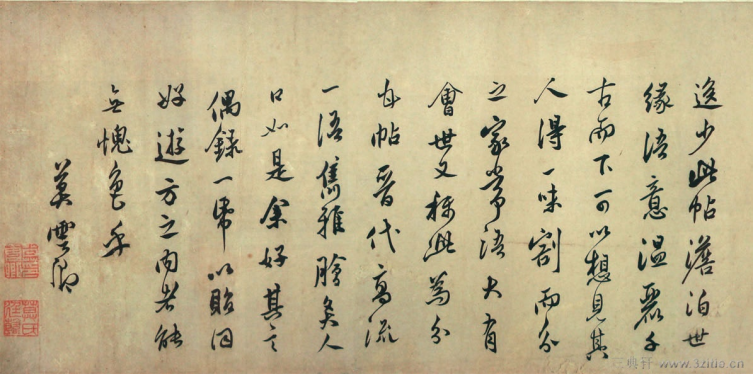 逸少此帖澹泊世
緣語意温麗千
古而下可以想見其
人得一味割而分
之家常語大有
會世又稱此為分
甘帖晉代高流
一語雋雅膾炙人
口如是余好其言
偶錄一帋以貽同
好遊方之内者能
無愧色乎
莫雲卿
www.3zitie.cn